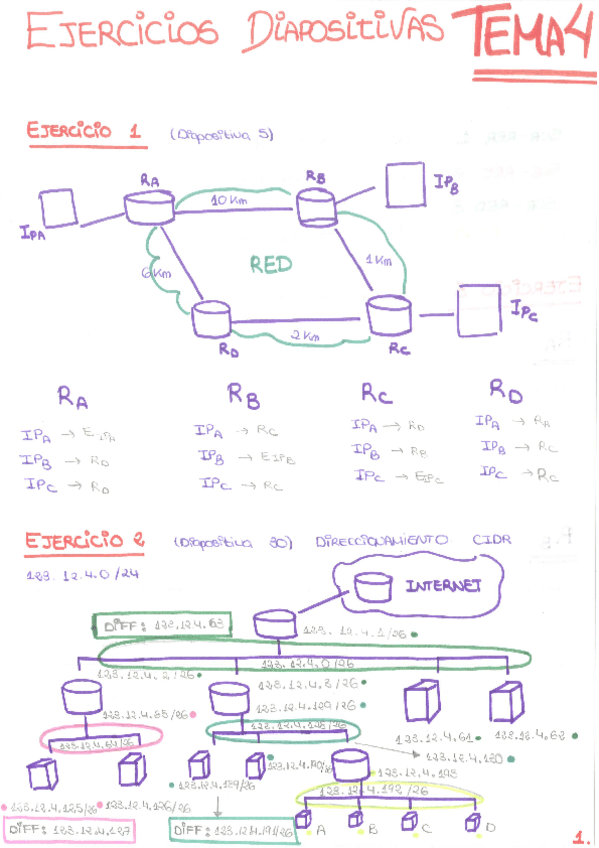 EJERCICIOS DIAPOSITIVAS TEMA 4
EJERCICIO 1 (Diapositiva 5)
RA
RB
IPB
IPA
10 Km
6 Km
RED
1 Km
2 Km
IPC
RD
RC
RA RB RC RD
IPA → EIPA IPA → RC IPA → RD IPA → RA
IPB → RD IPB → EIPB IPB → RB IPB → RC
IPC → RD IPC → RC IPC → EIPC IPC → RC
EJERCICIO 2 (Diapositiva 30) DIRECCIONAMIENTO CIDR
123.12.4.0/24
INTERNET
DIFF: 123.12.4.63
123.12.4.1/26
123.12.4.0/26
123.12.4.2/26
123.12.4.3/26
123.12.4.129/26
123.12.4.65/26
123.12.4.64/26
123.12.4.128/26
123.12.4.61
123.12.4.62
123.12.4.130
123.12.4.193
123.12.4.192/26
123.12.4.125/26
123.12.4.126/26
DIFF: 123.12.4.127
DIFF: 123.12.4.191/26
A B C D
1.